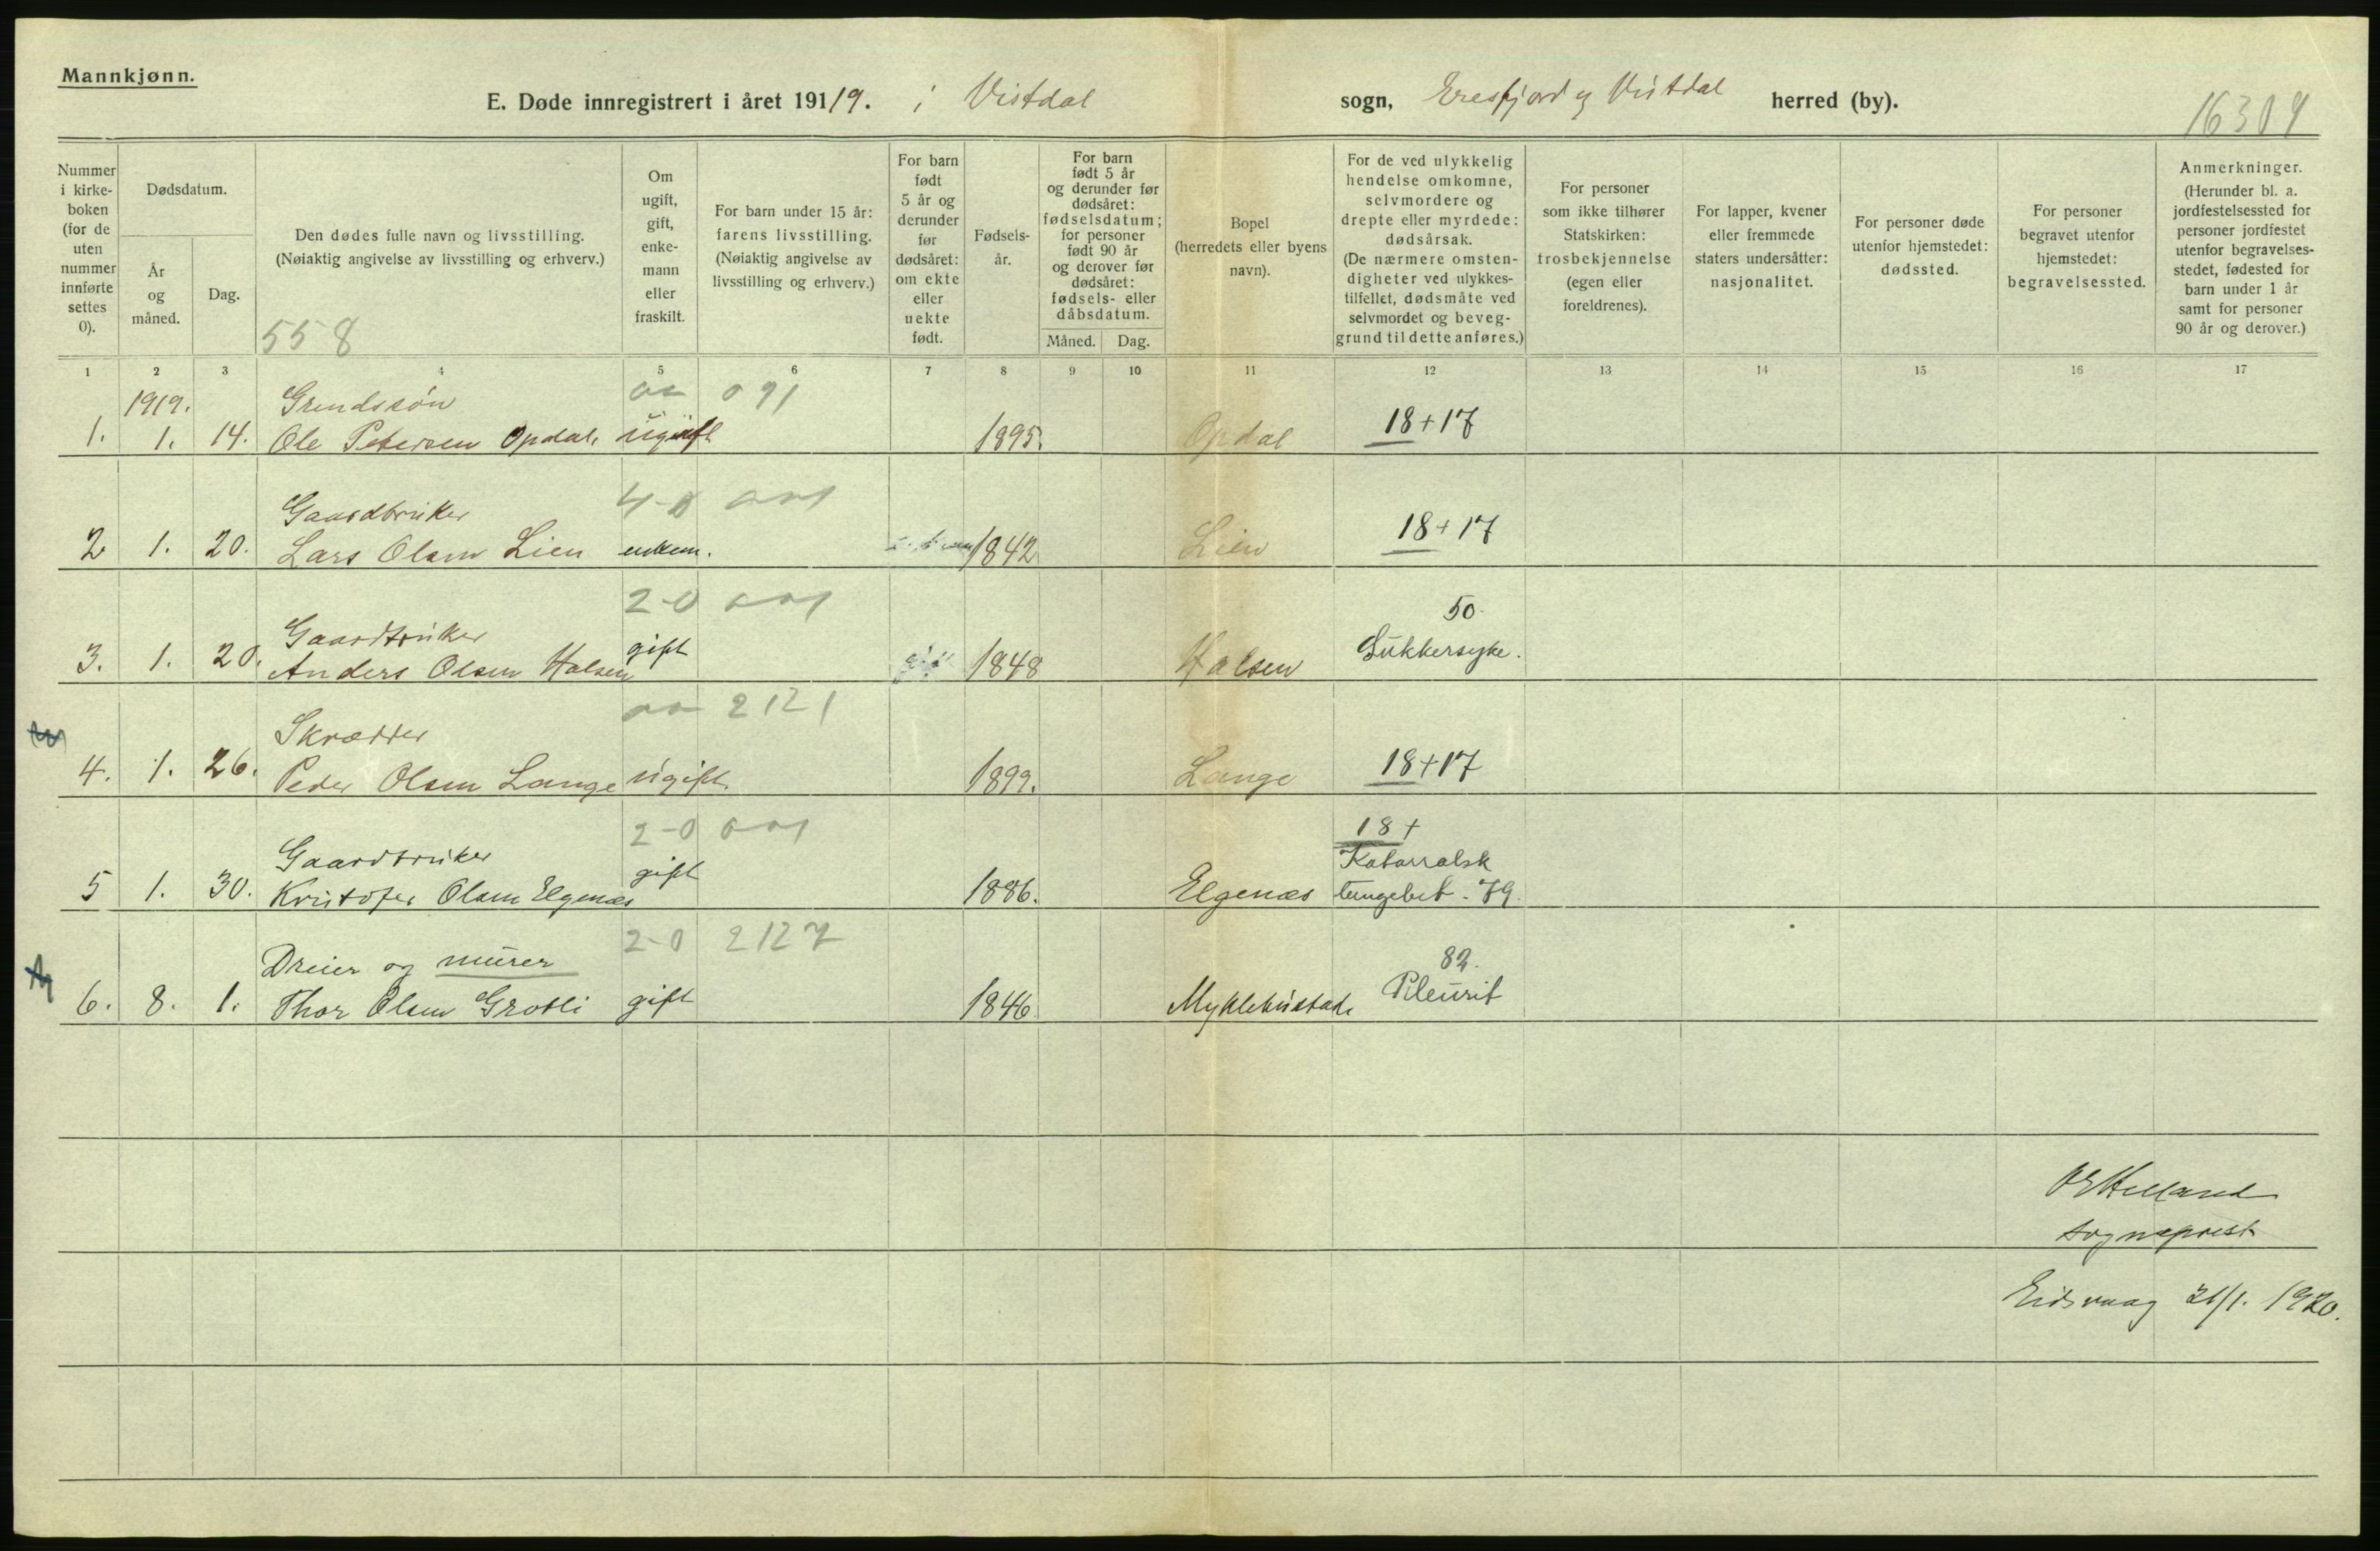 Mannkjønn.
E. Døde innregistrert i året 19119. i Vistdal sogn, Eresfjord og Vistdal herred (by).
Nummer i kirke-boken (for de uten nummer innførte settes 0).
Dødsdatum.
År og måned.
Dag.
Den dødes fulle navn og livsstilling.
(Nøiaktig angivelse av livsstilling og erhverv.)
558
Om ugift, gift, enke-mann eller fraskilt.
For barn under 15 år: farens livsstilling. (Nøiaktig angivelse av livsstilling og erhverv.)
For barn født 5 år og derunder før dødsåret: om ekte eller uekte født.
Fødsels-år.
For barn født 5 år og derunder før dødsåret: fødselsdatum; for personer født 90 år og derover før dødsåret: fødsels- eller dåbsdatum.
Måned. Dag.
Bopel (herredets eller byens navn).
For de ved ulykkelig hendelse omkomne, selvmordere og drepte eller myrdede: dødsårsak. (De nærmere omsten-digheter ved ulykkes-tilfellet, dødsmåte ved selvmordet og beveg-grund til dette anføres.)
For personer som ikke tilhører Statskirken: trosbekjennelse (egen eller foreldrenes).
For lapper, kvener eller fremmede staters undersåtter: nasjonalitet.
For personer døde utenfor hjemstedet: dødssted.
For personer begravet utenfor hjemstedet: begravelsessted.
Anmerkninger. (Herunder bl. a. jordfestelsessted for personer jordfestet utenfor begravelses-stedet, fødested for barn under 1 år samt for personer 90 år og derover.)
1 2 3 4 5 6 7 8 9 10 11 12 13 14 15 16 17
1919. 091
1. 1. 14. Ole Petersen Opdal. ugift 1895. Opdal 18+17
Gaardbruker 4-0
2 1. 20. Lars Olsen Lien enkem. 1842 Lien 18+17
Gaardbruker 2-0 50.
3. 1. 20. Anders Olsen Halsen gift 1848 Halsen Sukkersyke.
Skrædder 2121
4. 1. 26. Peder Olsen Lange ugift. 1899. Lange 18+17
Gaardbruker 2-0 18+
5 1. 30. Kristofer Olsen Elgenæs gift 1886. Elgenæs Katarralsk lungebet. 79.
Dreier og murer 2-0 2127 82.
6. 8. 1. Thor Olsen Grotli gift 1846 Myklebustad. Pleurit
sogneprest
Eidsvaag 21/1. 1920.